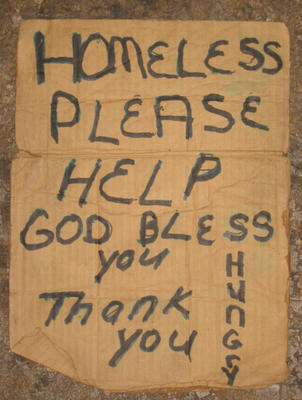 HOMELESS
PLEASE
HELP
GOD BLESS
you
Thank
you
HunGry